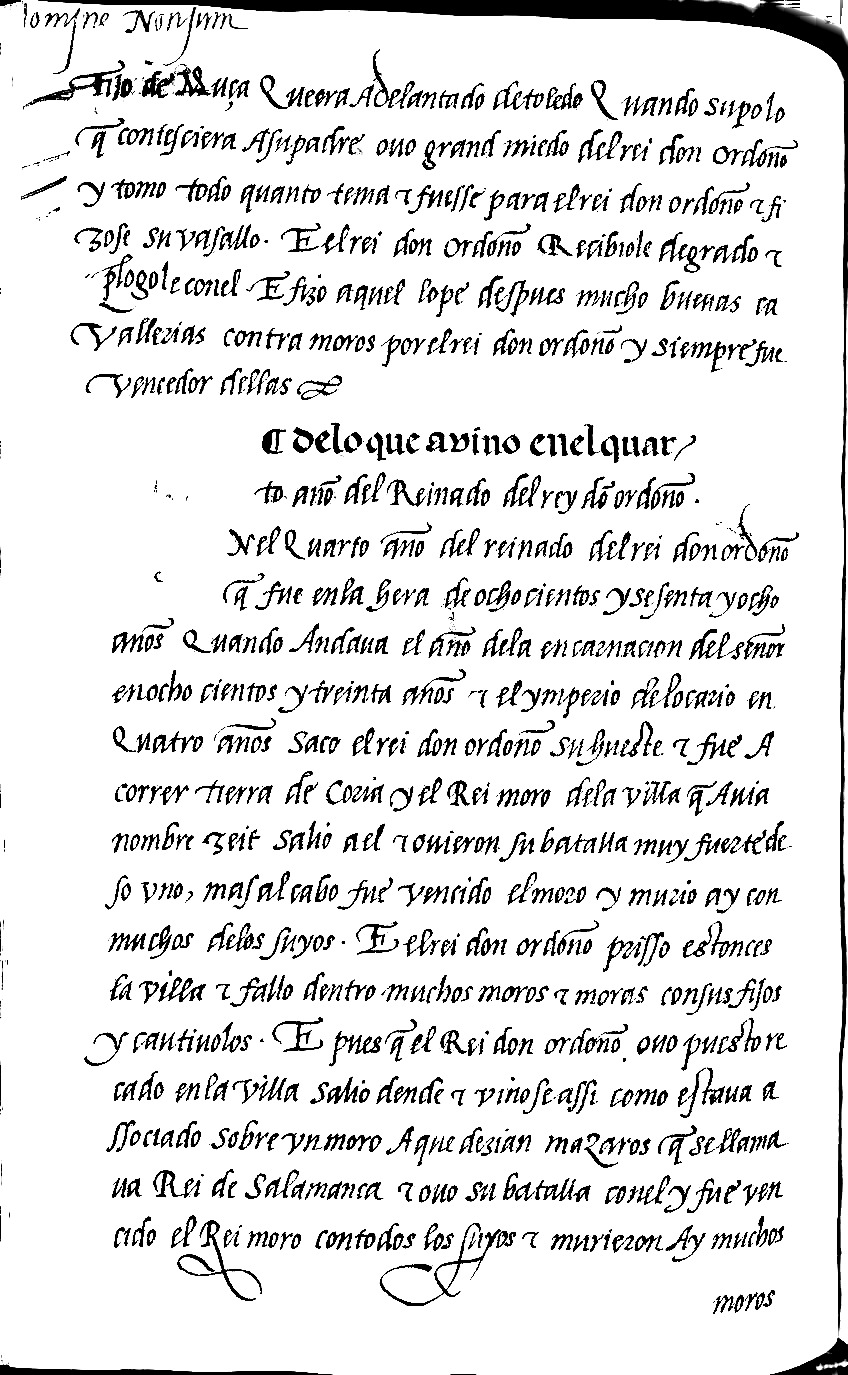 Nonsum
fijo de Muça Queera Adelantado detoledo Quando supolo
q̄ contesciera Asupadre ouo grand miedo delrei don ordoño
y tomo todo quanto tenia ⁊ fuesse para elrei don ordoño ⁊ fi
zose su vasallo. E elrei don ordoño Recibiole degrado ⁊
plogole conel. E fizo aquel lope despues mucho buenas ca
Vallerias contra moros por elrei don ordoño y siempre fue
Vencedor dellas
¶ delo que avino enel quar/
to año del Reinado del rey dō ordoño.
Nel Quarto año del reinado del rei don ordoño
q̄ fue enla hera de ocho cientos y sesenta y ocho
años Quando Andaua el año dela encarnacion del señor
en ocho cientos y treinta años ⁊ el ymperio de locario en
Quatro años saco el rei don ordoño su hueste ⁊ fue A
correr tierra de Coria y el Rei moro dela villa q̄ Auia
nombre zeit salio a el ⁊ ouieron su batalla muy fuerte de
so vno, mas al cabo fue vencido el moro y murio ay con
muchos delos suyos. E elrei don ordoño prisso estonces
la villa ⁊ fallo dentro muchos moros ⁊ moras consus fijos
y cautiuolos. E pues q̄ el Rei don ordoño ouo puesto re
cado enla Villa salio dende ⁊ vino se assi como estaua a
ssociado sobre vn moro Aque dezian mazaros q̄ se llama
ua Rei de Salamanca ⁊ ouo su batalla conel y fue ven
cido el Rei moro contodos los suyos ⁊ murieron Ay muchos
moros